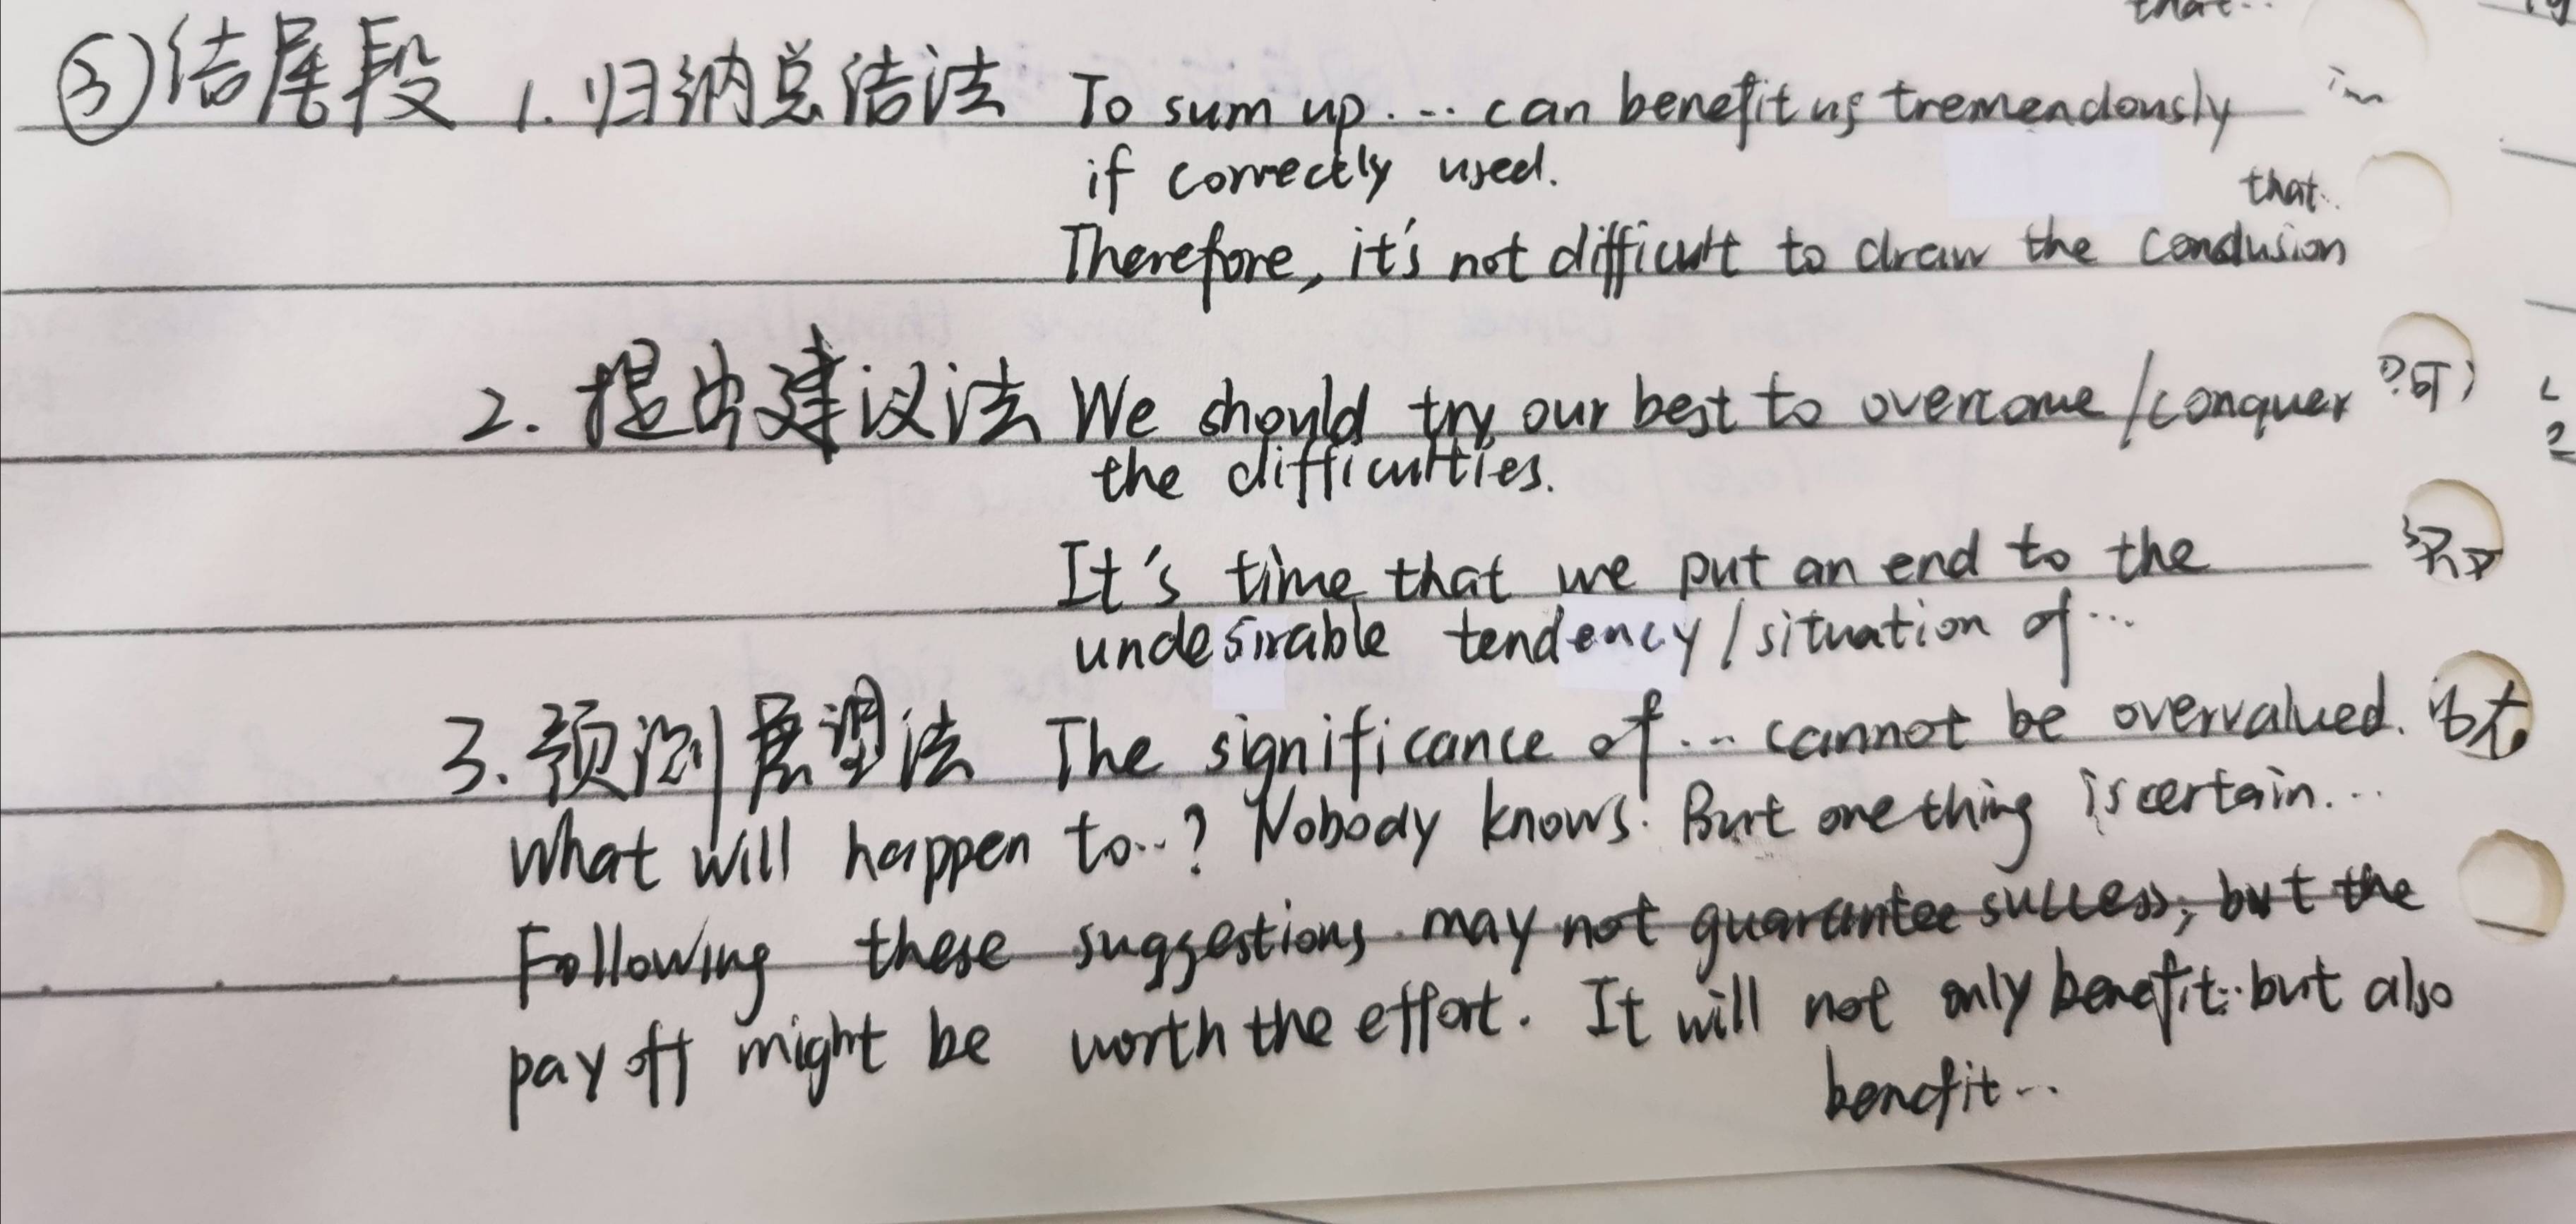 that...
③结尾段 1. 归纳总结法 To sum up.... can benefit us tremendously
if correctly used.
that..
Therefore, it's not difficult to draw the conclusion
2. 提出建议法 We should try our best to overcome/conquer
the difficulties.
It's time that we put an end to the
undesirable tendency/situation of...
3. 预测展望法 The significance of... cannot be overvalued.
What will happen to..? Nobody knows. But one thing is certain...
Following these suggestions may not guarantee success, but the
pay off might be worth the effort. It will not only benefit.. but also
benefit...